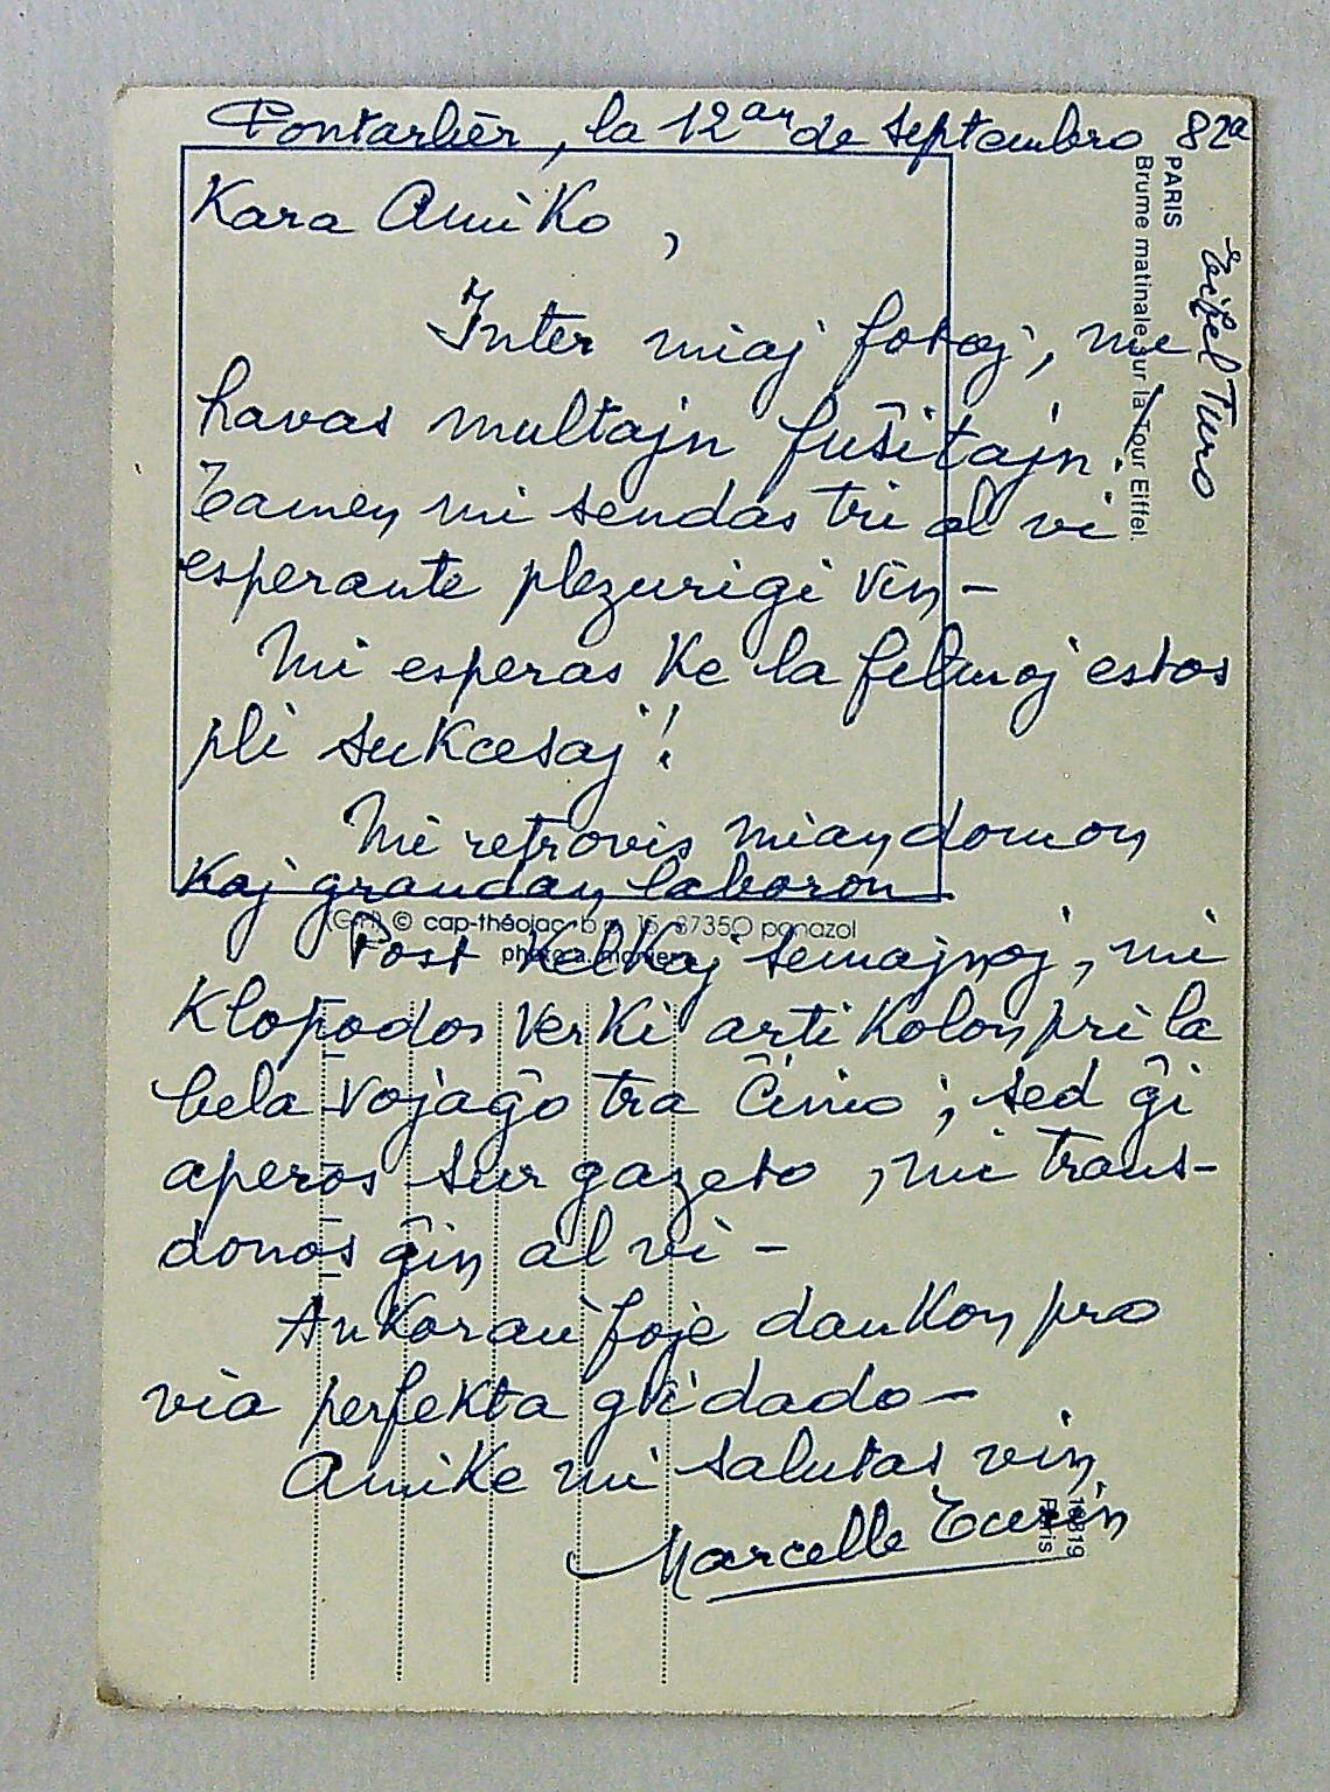 Pontarlier, la 12an de septembro 82a
Kara Amiko,
Inter miaj fotoj, mi
havas multajn fuŝitajn.
Tamen mi sendas tri al vi
esperante plezurigi vin –
Mi esperas ke la filmoj estos
pli sukcesaj !
Mi retrovis mian domon
Kaj grandan laboron
Post kelkaj semajnoj, mi
klopodos verki artikolon pri la
bela vojaĝo tra Ĉinio ; sed ĝi
aperos sur gazeto, mi trans-
donos ĝin al vi –
Ankoraŭ foje dankon pro
via perfekta gvidado –
Amike mi salutas vin,
Marcelle Turin
PARIS
Brume matinale sur la Tour Eiffel.
Eifel Turo
© cap-théojac 87350 panazol
Paris